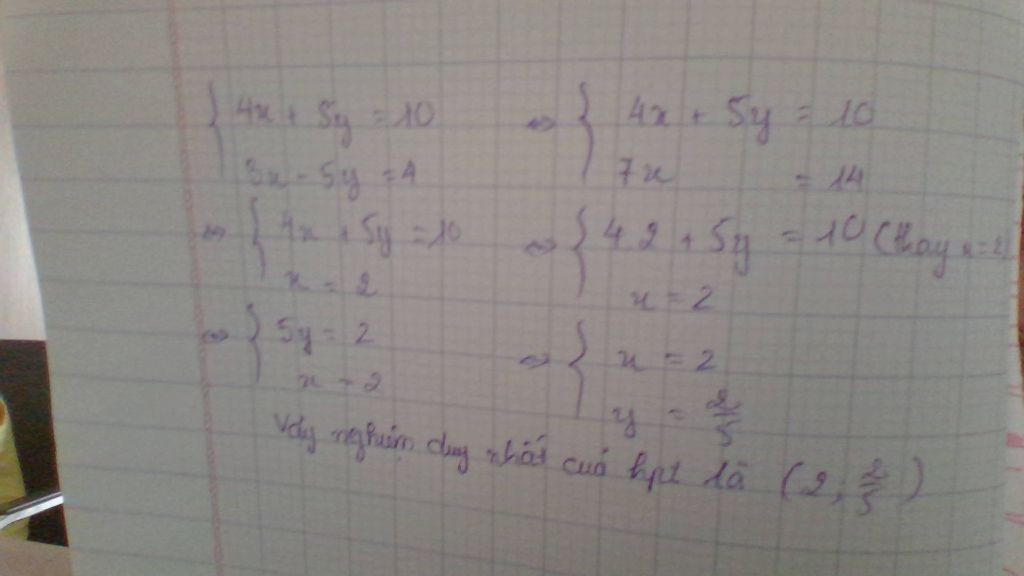 { 4x + 5y = 10 ⇔ { 4x + 5y = 10
3x - 5y = 4 7x = 14
⇔ { 4x + 5y = 10 ⇔ { 4.2 + 5y = 10 (thay x = 2)
x = 2 x = 2
⇔ { 5y = 2 ⇔ { x = 2
x = 2 y = 2/5
Vậy nghiệm duy nhất của hpt là (2; 2/5)